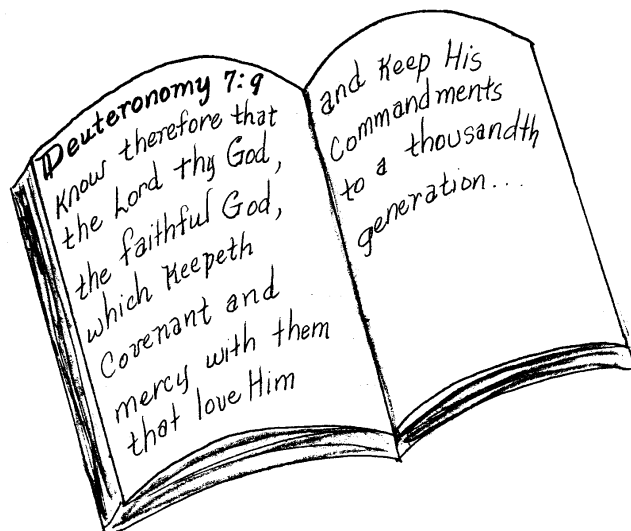 Deuteronomy 7:9
Know therefore that
the Lord thy God,
the faithful God,
which Keepeth
Covenant and
mercy with them
that love Him
and Keep His
Commandments
to a thousandth
generation...